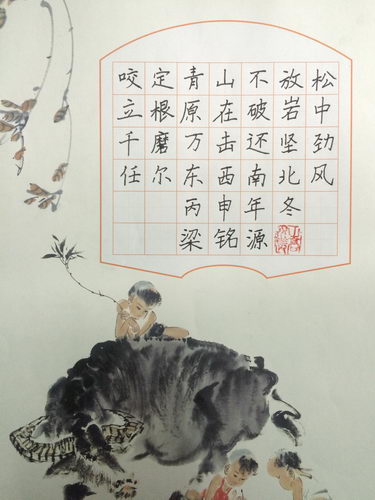 咬定青山不放松
立根原在破岩中
千磨万击还坚劲
任尔东西南北风
丙申年冬
梁铭源